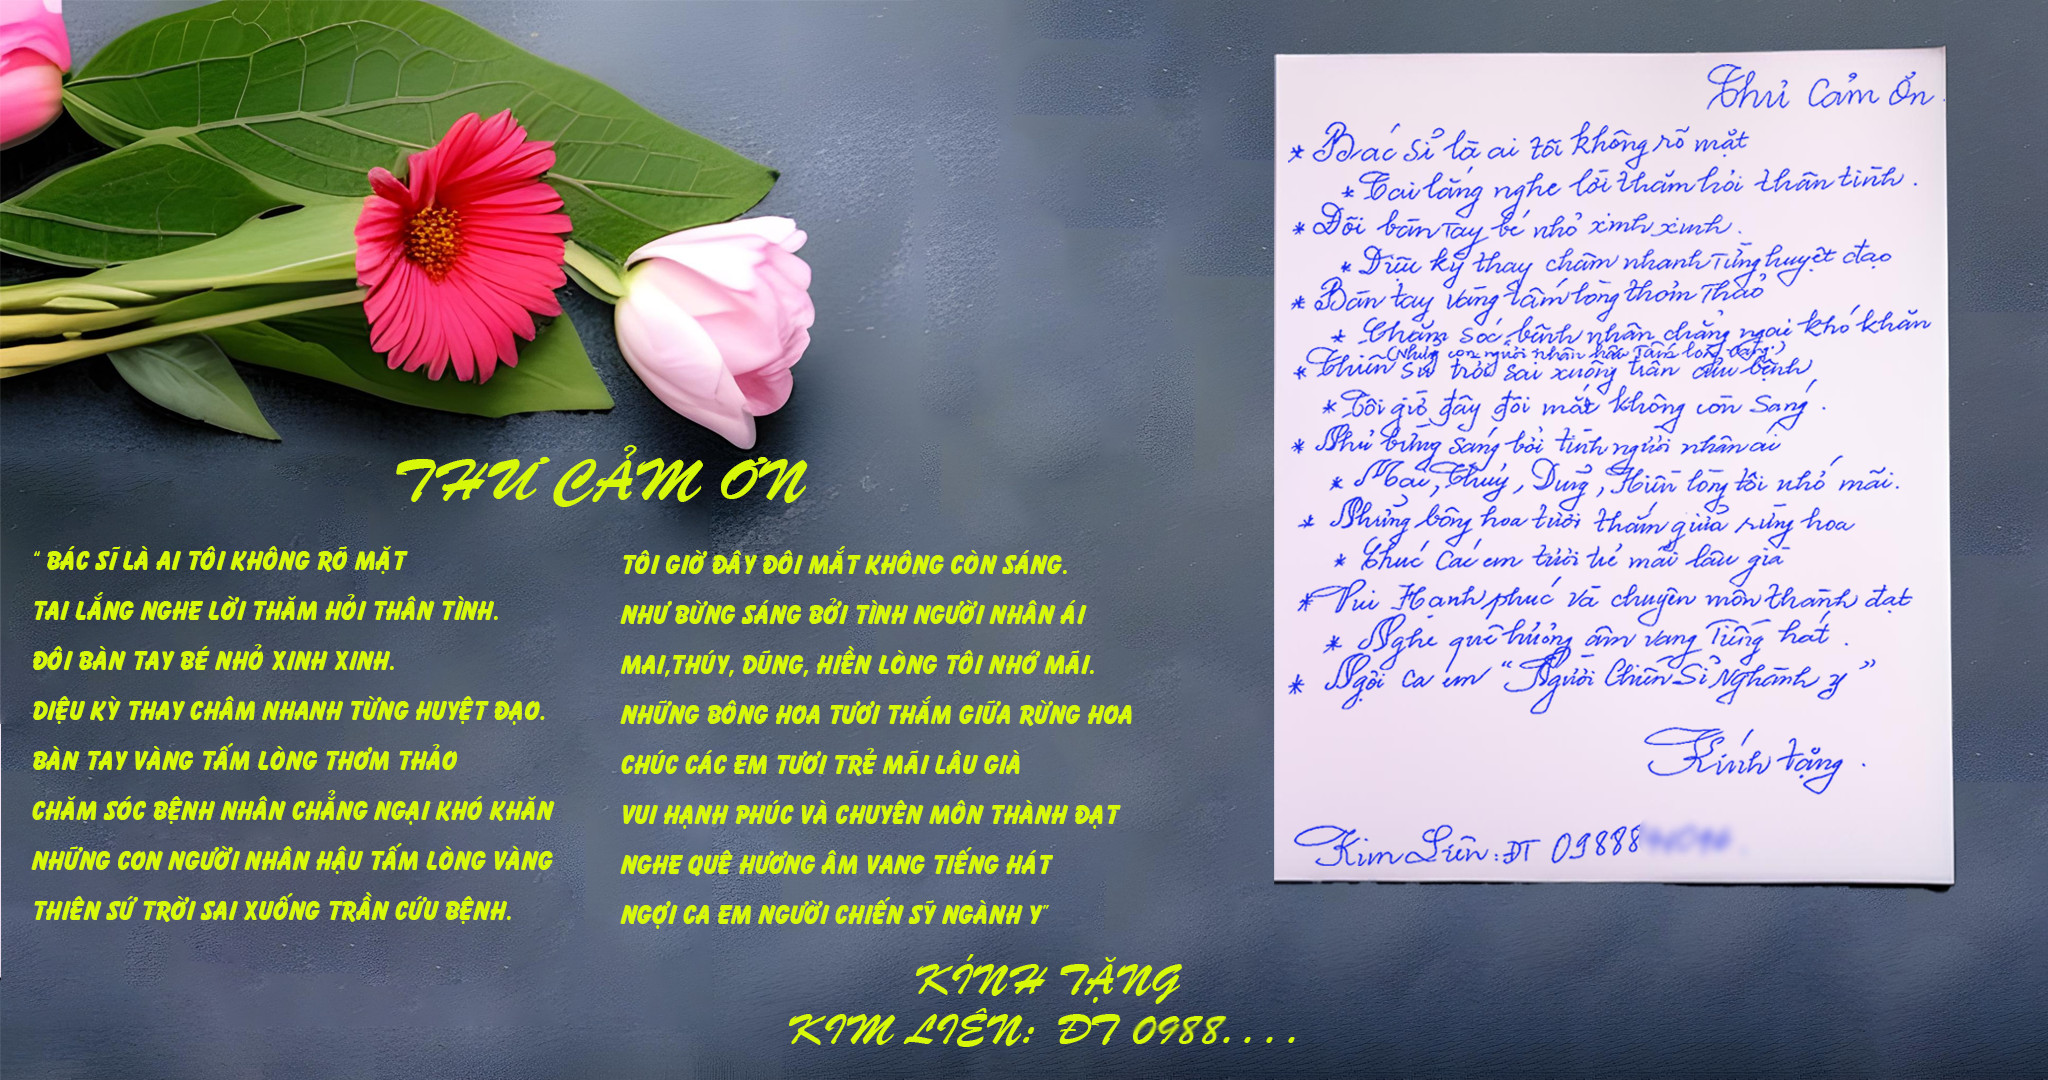 THƯ CẢM ƠN
“ BÁC SĨ LÀ AI TÔI KHÔNG RÕ MẶT
TAI LẮNG NGHE LỜI THĂM HỎI THÂN TÌNH.
ĐÔI BÀN TAY BÉ NHỎ XINH XINH.
DIỆU KỲ THAY CHÂM NHANH TỪNG HUYỆT ĐẠO.
BÀN TAY VÀNG TẤM LÒNG THƠM THẢO
CHĂM SÓC BỆNH NHÂN CHẲNG NGẠI KHÓ KHĂN
NHỮNG CON NGƯỜI NHÂN HẬU TẤM LÒNG VÀNG
THIÊN SỨ TRỜI SAI XUỐNG TRẦN CỨU BỆNH.
TÔI GIỜ ĐÂY ĐÔI MẮT KHÔNG CÒN SÁNG.
NHƯ BỪNG SÁNG BỞI TÌNH NGƯỜI NHÂN ÁI
MAI,THÚY, DŨNG, HIỀN LÒNG TÔI NHỚ MÃI.
NHỮNG BÔNG HOA TƯƠI THẮM GIỮA RỪNG HOA
CHÚC CÁC EM TƯƠI TRẺ MÃI LÂU GIÀ
VUI HẠNH PHÚC VÀ CHUYÊN MÔN THÀNH ĐẠT
NGHE QUÊ HƯƠNG ÂM VANG TIẾNG HÁT
NGỢI CA EM NGƯỜI CHIẾN SỸ NGÀNH Y”
KÍNH TẶNG
KIM LIÊN: ĐT 0988....
Thư Cảm Ơn.
* Bác sĩ là ai tôi không rõ mặt
* Tai lắng nghe lời thăm hỏi thân tình.
* Đôi bàn tay bé nhỏ xinh xinh.
* Diệu kỳ thay châm nhanh từng huyệt đạo
* Bàn tay vàng tấm lòng thơm thảo
* Chăm sóc bệnh nhân chẳng ngại khó khăn
(Những con người nhân hậu tấm lòng vàng.)
* Thiên sứ trời sai xuống trần cứu bệnh
* Tôi giờ đây đôi mắt không còn sáng.
* Như bừng sáng bởi tình người nhân ái
* Mai, Thúy, Dũng, Hiền lòng tôi nhớ mãi.
* Những bông hoa tươi thắm giữa rừng hoa
* Chúc các em tươi trẻ mãi lâu già
* Vui Hạnh phúc và chuyên môn thành đạt
* Nghe quê hương âm vang tiếng hát.
* Ngợi ca em “Người Chiến Sĩ Nghành y”
Kính tặng.
Kim Liên: ĐT 09888